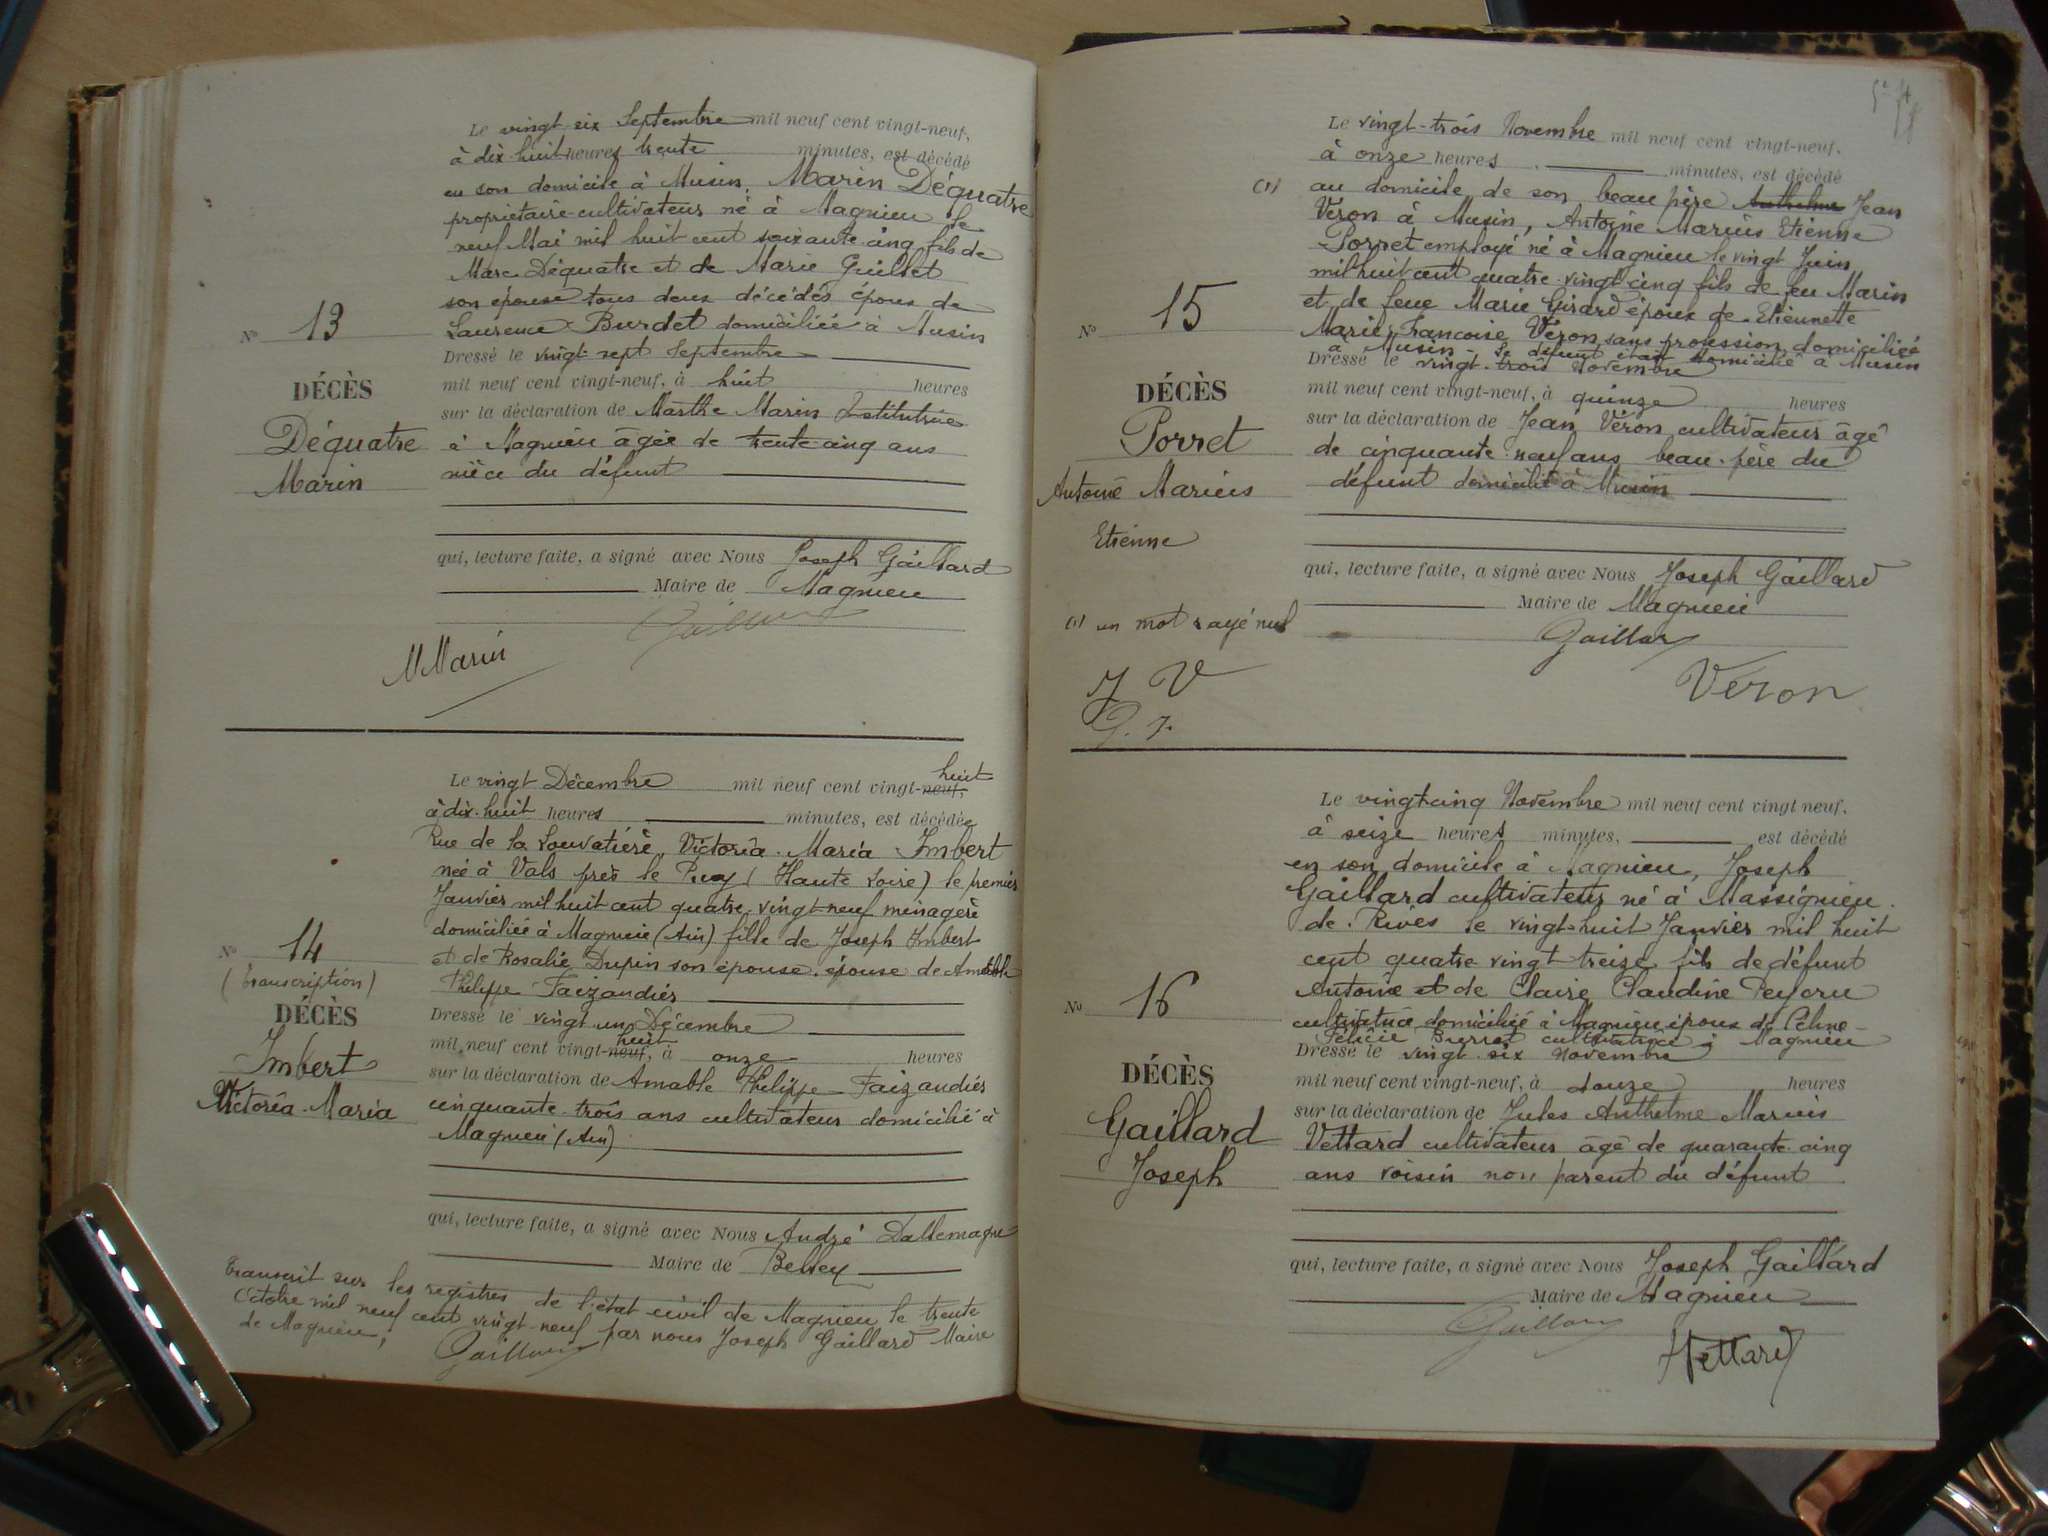 Le vingt six Septembre mil neuf cent vingt-neuf,
à dix huit heures trente minutes, est décédé
en son domicile à Musin, Marin Déquatre
propriétaire-cultivateur né à Magnieu le
neuf Mai mil huit cent soixante-cinq fils de
Marc Déquatre et de Marie Guillet
son épouse tous deux décédés époux de
Laurence Burdet domiciliée à Musin
Dressé le vingt-sept Septembre
mil neuf cent vingt-neuf, à huit heures
sur la déclaration de Marthe Marin Institutrice
à Magnieu âgée de trente-cinq ans
nièce du défunt
qui, lecture faite, a signé avec Nous Joseph Gaillard
Maire de Magnieu
Gaillard
MMarin
No 13
DÉCÈS
Déquatre
Marin
Le vingt Décembre mil neuf cent vingt-neuf, huit
à dix-huit heures minutes, est décédée
Rue de la Louvatière, Victoria-Maria Imbert
née à Vals près le Puy (Haute Loire) le premier
Janvier mil huit cent quatre-vingt-neuf ménagère
domiciliée à Magnieu (Ain) fille de Joseph Imbert
et de Rosalie Dupin son épouse, épouse de Amable
Philippe Faizandier
Dressé le vingt un Décembre
mil neuf cent vingt-neuf, huit à onze heures
sur la déclaration de Amable Philippe Faizandier
cinquante-trois ans cultivateur domicilié à
Magnieu (Ain)
qui, lecture faite, a signé avec Nous André Dallemagne
Maire de Belley
Transcrit sur les registres de l'état civil de Magnieu le trente
Octobre mil neuf cent vingt-neuf par nous Joseph Gaillard Maire
de Magnieu,
Gaillard
No 14
(transcription)
DÉCÈS
Imbert
Victoria-Maria
Le vingt-trois Novembre mil neuf cent vingt-neuf,
à onze heures minutes, est décédé
(1) au domicile de son beau père Anthelme Jean
Véron à Musin, Antoine Marius Etienne
Porret employé né à Magnieu le vingt Juin
mil huit cent quatre-vingt-cinq fils de feu Marin
et de feue Marie Girard époux de Etiennette
Marie Françoise Véron sans profession domiciliée
à Musin - le défunt étant domicilié à Musin
Dressé le vingt-trois Novembre
mil neuf cent vingt-neuf, à quinze heures
sur la déclaration de Jean Véron cultivateur âgé
de cinquante-neuf ans beau-père du
défunt domicilié à Musin
qui, lecture faite, a signé avec Nous Joseph Gaillard
Maire de Magnieu
Gaillard
Véron
No 15
DÉCÈS
Porret
Antoine Marius
Etienne
(1) un mot rayé nul
J V
G. J.
Le vingt-cinq Novembre mil neuf cent vingt neuf,
à seize heures minutes, est décédé
en son domicile à Magnieu, Joseph
Gaillard cultivateur né à Massignieu
de Rives le vingt-huit Janvier mil huit
cent quatre vingt treize fils de défunt
Antoine et de Claire Claudine Peycru
cultivatrice domiciliée à Magnieu époux de
Félicie Burret cultivatrice à Magnieu
Dressé le vingt-six Novembre
mil neuf cent vingt-neuf, à douze heures
sur la déclaration de Jules Anthelme Marius
Vettard cultivateur âgé de quarante-cinq
ans voisin non parent du défunt
qui, lecture faite, a signé avec Nous Joseph Gaillard
Maire de Magnieu
Gaillard
Vettard
No 16
DÉCÈS
Gaillard
Joseph